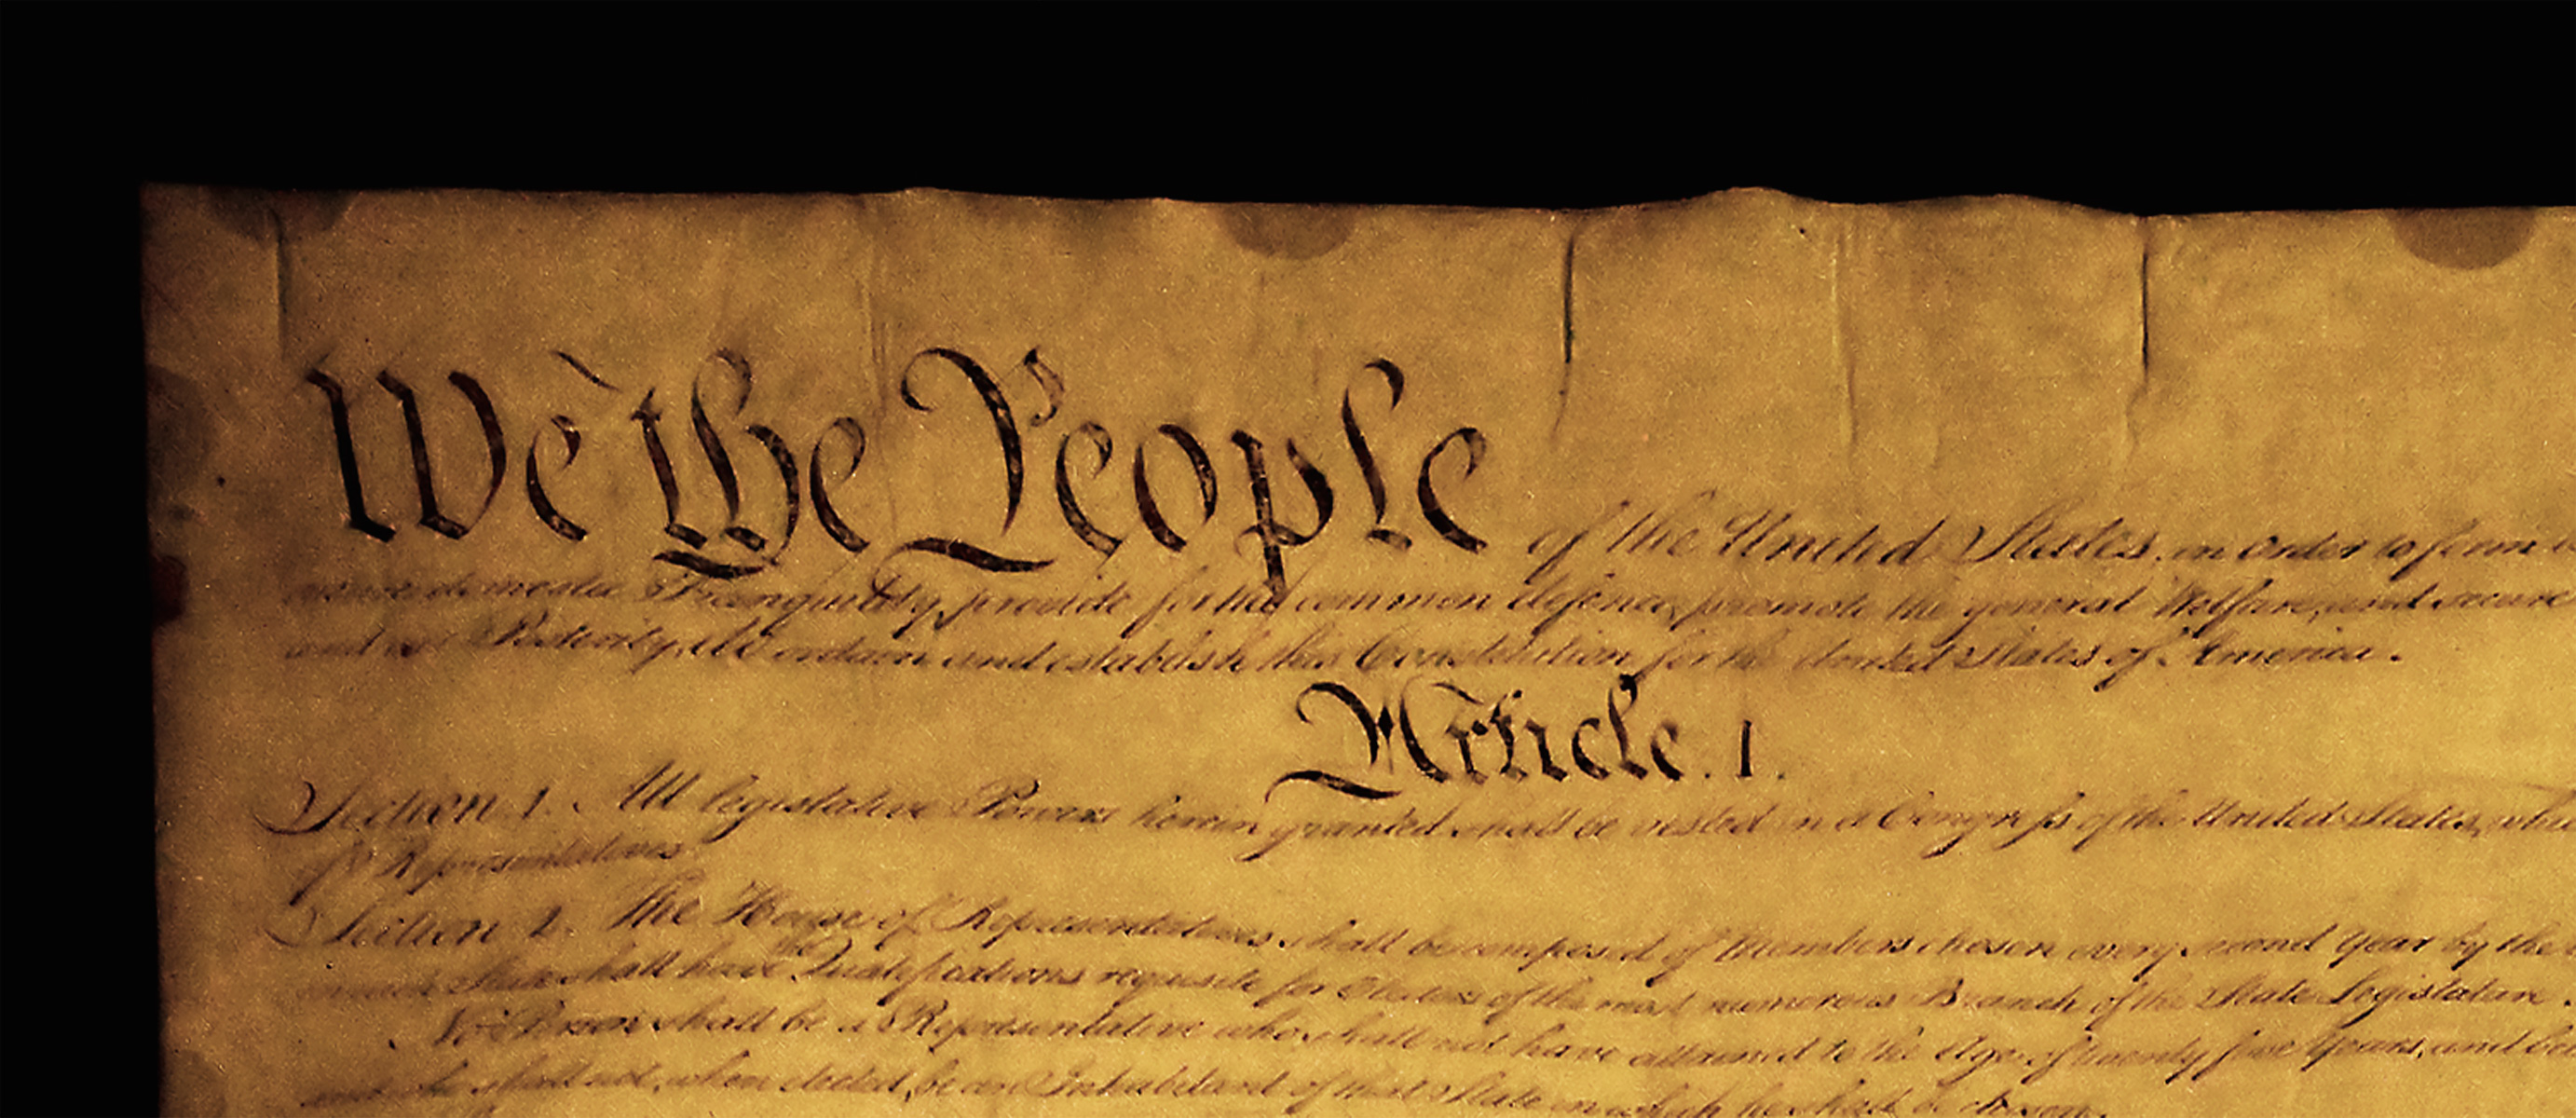 We the People of the United States, in Order to form
insure domestic Tranquility, provide for the common defence, promote the general Welfare, and secure
and our Posterity, do ordain and establish this Constitution for the United States of America.
Article. I.
Section. 1. All legislative Powers herein granted shall be vested in a Congress of the United States, which
of Representatives.
Section. 2. The House of Representatives shall be composed of Members chosen every second Year by the
in each State shall have the Qualifications requisite for Electors of the most numerous Branch of the State Legislature.
No Person shall be a Representative who shall not have attained to the Age of twenty five Years, and been
and who shall not, when elected, be an Inhabitant of that State in which he shall be chosen.